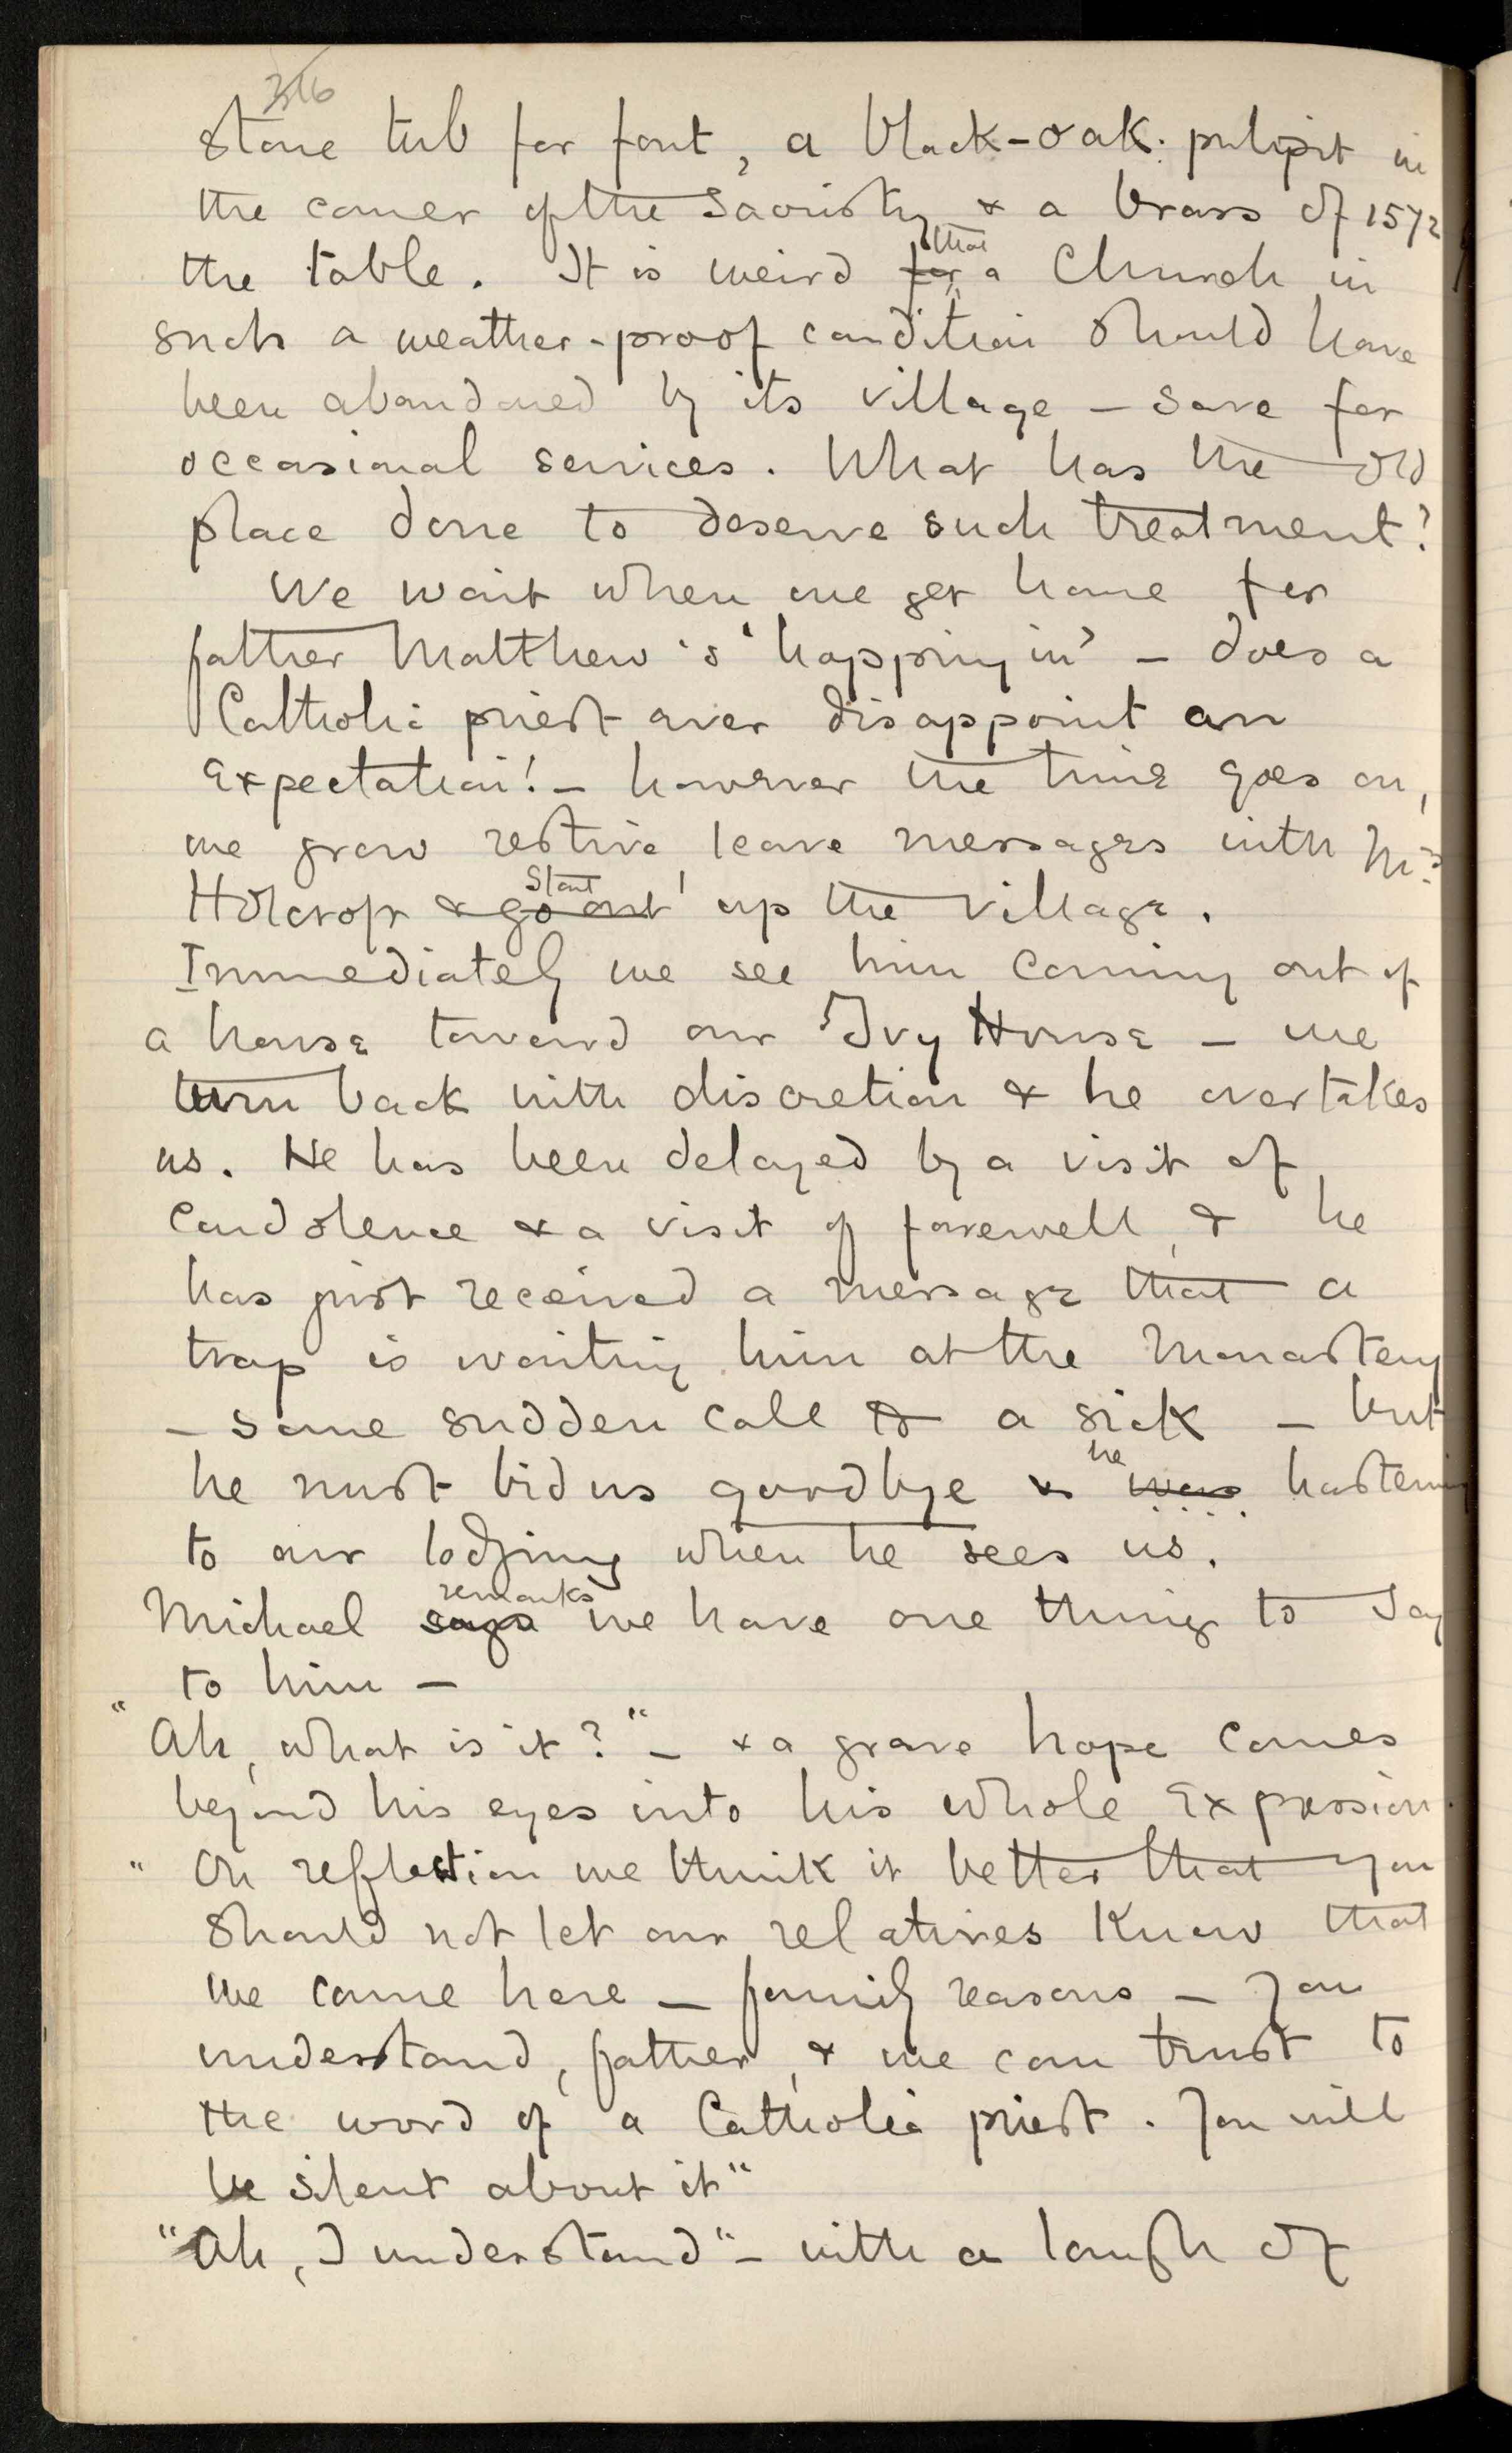 stone tub for font, a black-oak pulpit in
the corner of the Sacristy & a brass of 1572
the table. It is weird for that a Church in
such a weather-proof condition should have
been abandoned by its village – save for
occasional services. What has the old
place done to deserve such treatment?
We wait when we get home for
father Matthew's 'happing in' – does a
Catholic priest ever disappoint an
Expectation! – however the time goes on,
we grow restive, leave messages with Mrs
Holcroft & go out start up the village.
Immediately we see him coming out of
a house toward our Ivy House – we
turn back with discretion & he overtakes
us. He has been delayed by a visit of
Condolence & a visit of farewell, & he
has just received a message that a
trap is waiting him at the Monastery
– some sudden call to a sick – but
he must bid us goodbye & he was hastening
to our lodging when he sees us.
Michael says remarks we have one thing to say
to him –
"Ah, what is it?" – & a grave hope comes
beyond his eyes into his whole Expression.
"On reflection we think it better that you
should not let our relatives know that
we came here – family reasons – you
understand, father, & we can trust to
the word of a Catholic priest. You will
be silent about it"
"Ah, I understand" – with a laugh of